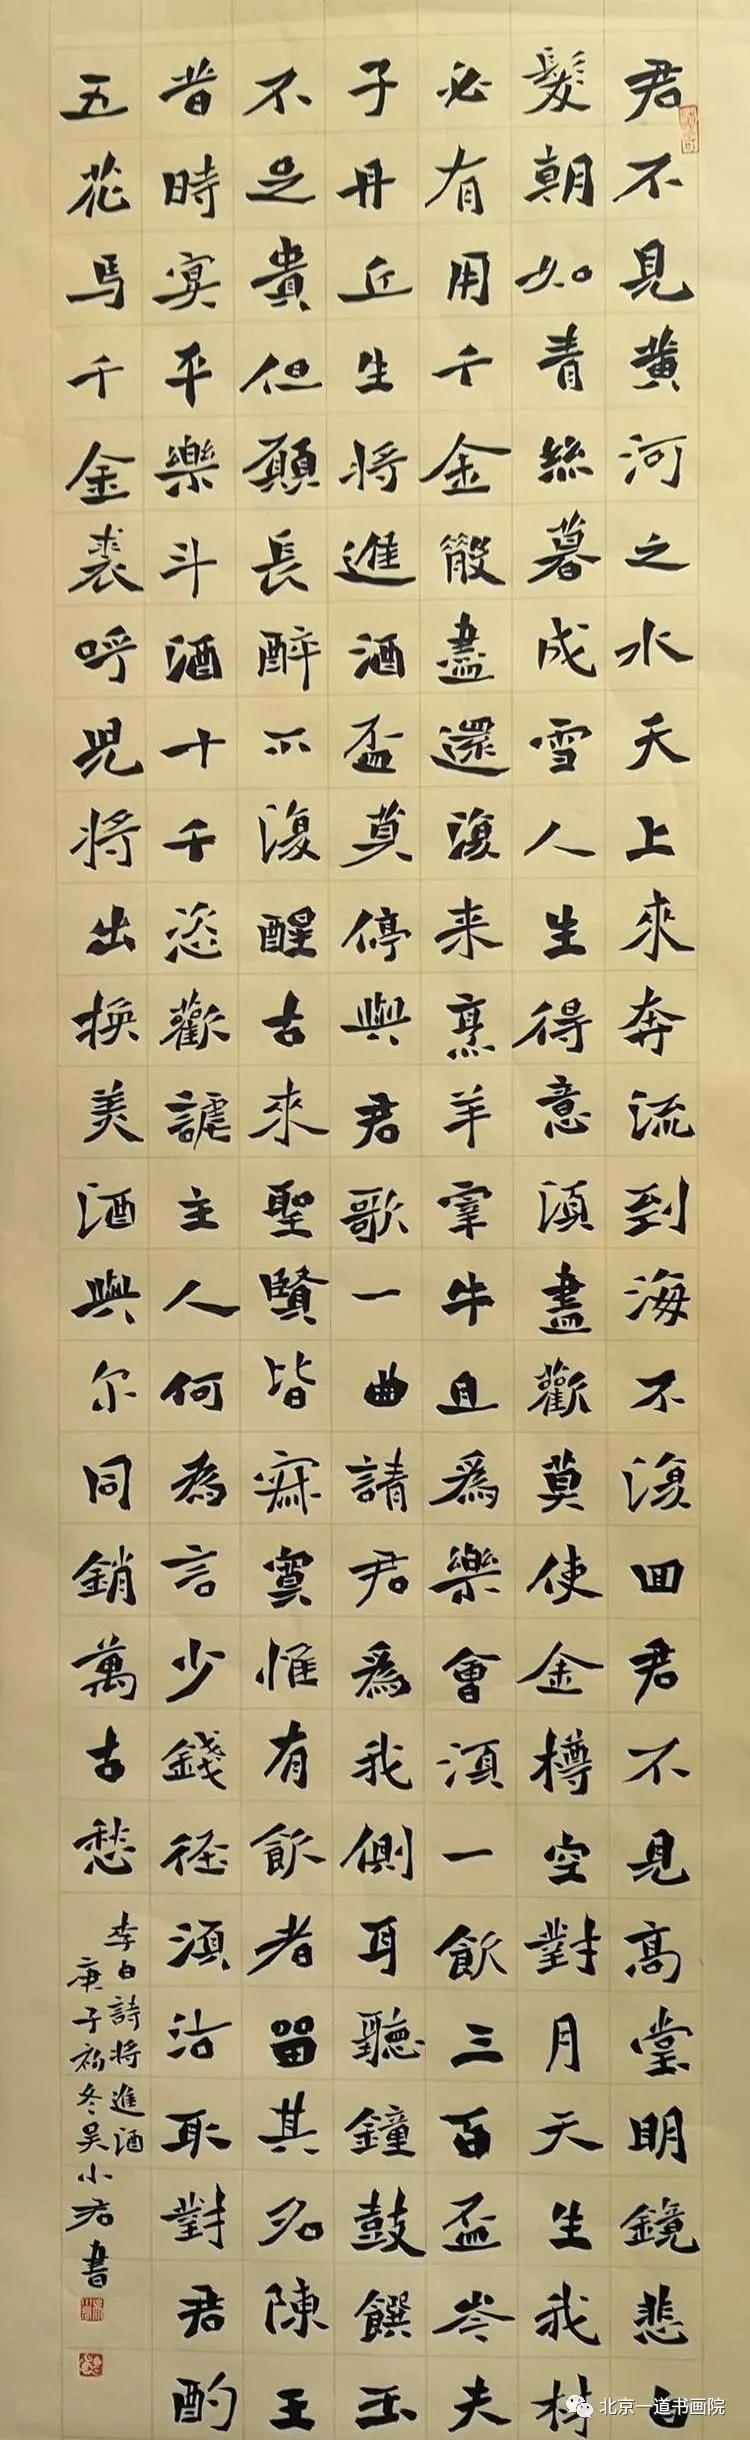 君不見黄河之水天上來奔流到海不復回君不見高堂明鏡悲白
髮朝如青絲暮成雪人生得意須盡歡莫使金樽空對月天生我材
必有用千金散盡還復来烹羊宰牛且爲樂會須一飲三百盃岑夫
子丹丘生将進酒盃莫停與君歌一曲請君爲我側耳聽鐘鼓饌玉
不足貴但願長醉不復醒古來聖賢皆寂寞惟有飲者留其名陳王
昔時宴平樂斗酒十千恣歡謔主人何為言少錢徑須沽取對君酌
五花馬千金裘呼児将出換美酒與尔同銷萬古愁
李白詩将進酒
庚子初冬吴小君書
北京一道书画院